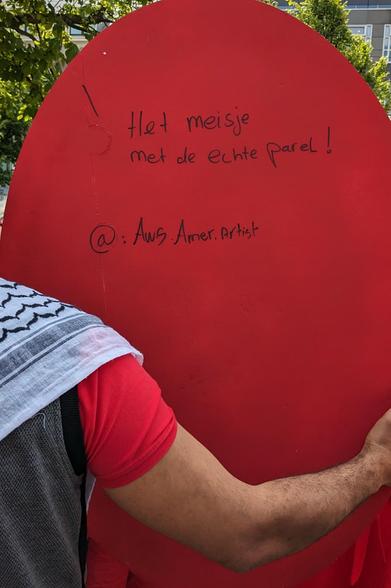 Het meisje
met de echte parel !
@: Aws.Amer.Artist